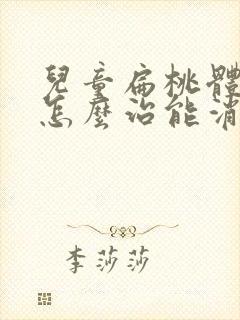 兒童扁桃體
怎麼治能消
李莎莎